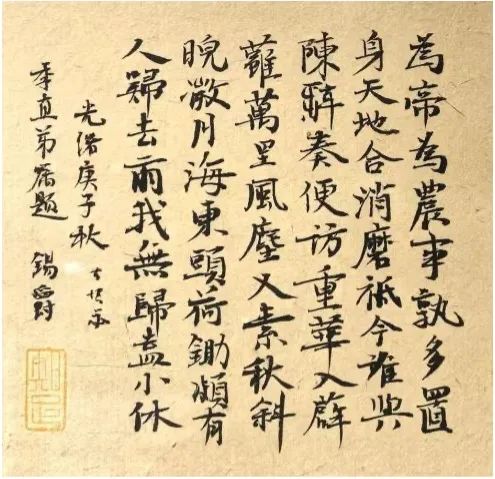 為帝為農事孰多置
身天地合消磨祗今誰與
陳奏便訪重華入薜
蘿萬里風塵又素秋斜
月海東頭荷鋤頗有
人歸去爾我無歸盍小休
光緒庚子秋
季直弟屬題 錫爵